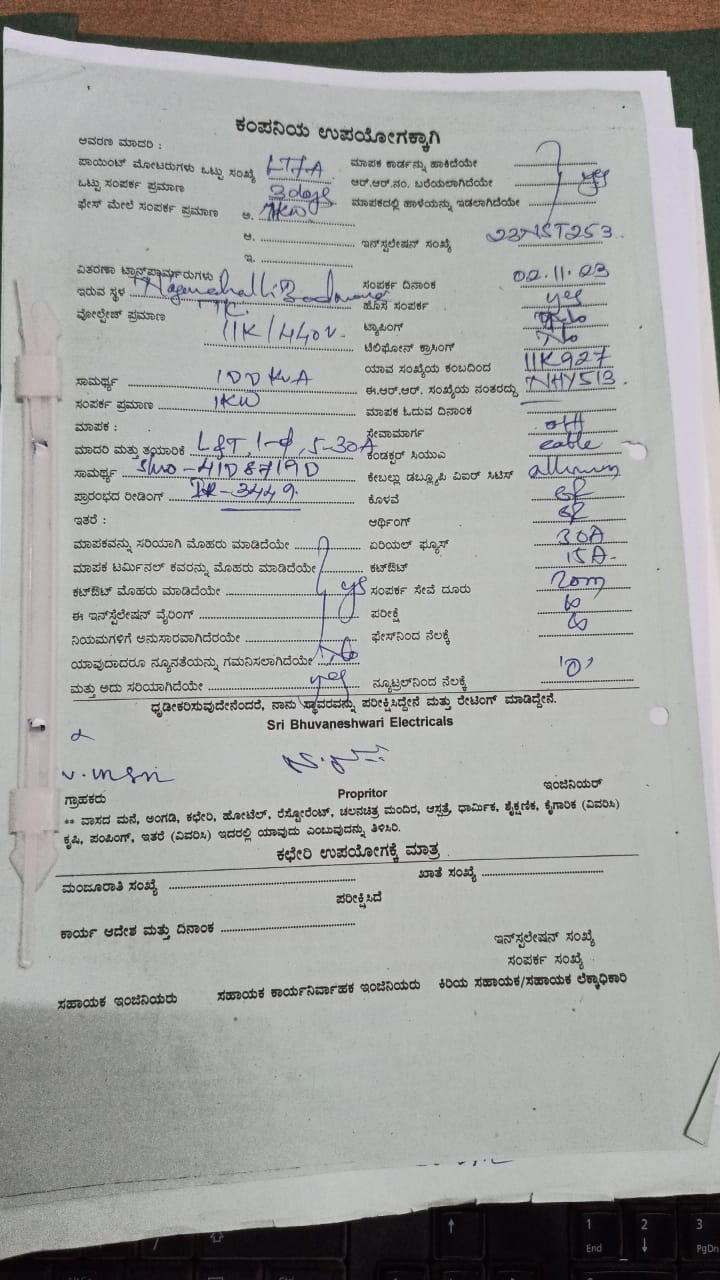 ಕಂಪನಿಯ ಉಪಯೋಗಕ್ಕಾಗಿ
ಆವರಣ ಮಾದರಿ :
ಪಾಯಿಂಟ್ ಮೋಟರುಗಳು ಒಟ್ಟು ಸಂಖ್ಯೆ ಮಾಪಕ ಕಾರ್ಡನ್ನು ಹಾಕಿದೆಯೇ
ಒಟ್ಟು ಸಂಪರ್ಕ ಪ್ರಮಾಣ 3 days ಆರ್.ಆರ್.ನಂ. ಬರೆಯಲಾಗಿದೆಯೇ yes
ಫೇಸ್ ಮೇಲೆ ಸಂಪರ್ಕ ಪ್ರಮಾಣ ಅ. 1KW ಮಾಪಕದಲ್ಲಿ ಹಾಳೆಯನ್ನು ಇಡಲಾಗಿದೆಯೇ
ಆ. ಇನ್‌ಸ್ಟಲೇಷನ್ ಸಂಖ್ಯೆ 23NST253
ಇ.
ವಿತರಣಾ ಟ್ರಾನ್ಸ್‌ಫಾರ್ಮರುಗಳು ಸಂಪರ್ಕ ದಿನಾಂಕ 02.11.23
ಇರುವ ಸ್ಥಳ ಹೊಸ ಸಂಪರ್ಕ yes
ವೋಲ್ಟೇಜ್ ಪ್ರಮಾಣ 11K/440V ಟ್ಯಾಪಿಂಗ್ No
ಟೆಲಿಫೋನ್ ಕ್ರಾಸಿಂಗ್ No
ಯಾವ ಸಂಖ್ಯೆಯ ಕಂಬದಿಂದ 11K927
ಸಾಮರ್ಥ್ಯ 100 KVA ಈ.ಆರ್.ಆರ್. ಸಂಖ್ಯೆಯ ನಂತರದ್ದು NHY513
ಸಂಪರ್ಕ ಪ್ರಮಾಣ 1KW ಮಾಪಕ ಓದುವ ದಿನಾಂಕ
ಮಾಪಕ : ಸೇವಾಮಾರ್ಗ OH
ಮಾದರಿ ಮತ್ತು ತಯಾರಿಕೆ L&T, 1-ф, 5-30A ಕಂಡಕ್ಟರ್ ಸಿಯುಎ cable
ಸಾಮರ್ಥ್ಯ ಕೇಬಲ್ಲು ಡಬ್ಲ್ಯೂಪಿ ವಿಐರ್ ಸಿಟಿಸ್
ಪ್ರಾರಂಭದ ರೀಡಿಂಗ್ IR-3449 ಕೊಳವೆ
ಇತರೆ : ಆರ್ಥಿಂಗ್
ಮಾಪಕವನ್ನು ಸರಿಯಾಗಿ ಮೊಹರು ಮಾಡಿದೆಯೇ ಏರಿಯಲ್ ಫ್ಯೂಸ್ 30A
ಮಾಪಕ ಟರ್ಮಿನಲ್ ಕವರನ್ನು ಮೊಹರು ಮಾಡಿದೆಯೇ ಕಟ್‌ಔಟ್ 15A
ಕಟ್‌ಔಟ್ ಮೊಹರು ಮಾಡಿದೆಯೇ yes ಸಂಪರ್ಕ ಸೇವೆ ದೂರು 20m
ಈ ಇನ್‌ಸ್ಟೆಲೇಷನ್ ವೈರಿಂಗ್ ಪರೀಕ್ಷೆ
ನಿಯಮಗಳಿಗೆ ಅನುಸಾರವಾಗಿದೆರಯೇ ಫೇಸ್‌ನಿಂದ ನೆಲಕ್ಕೆ
ಯಾವುದಾದರೂ ನ್ಯೂನತೆಯನ್ನು ಗಮನಿಸಲಾಗಿದೆಯೇ No
ಮತ್ತು ಅದು ಸರಿಯಾಗಿದೆಯೇ yes ನ್ಯೂಟ್ರಲ್‌ನಿಂದ ನೆಲಕ್ಕೆ '0'
ಧೃಡೀಕರಿಸುವುದೇನೆಂದರೆ, ನಾನು ಸ್ಥಾವರವನ್ನು ಪರೀಕ್ಷಿಸಿದ್ದೇನೆ ಮತ್ತು ರೇಟಿಂಗ್ ಮಾಡಿದ್ದೇನೆ.
Sri Bhuvaneshwari Electricals
ಗ್ರಾಹಕರು Propritor ಇಂಜಿನಿಯರ್
** ವಾಸದ ಮನೆ, ಅಂಗಡಿ, ಕಛೇರಿ, ಹೋಟೆಲ್, ರೆಸ್ಟೋರೆಂಟ್, ಚಲನಚಿತ್ರ ಮಂದಿರ, ಆಸ್ಪತ್ರೆ, ಧಾರ್ಮಿಕ, ಶೈಕ್ಷಣಿಕ, ಕೈಗಾರಿಕ (ವಿವರಿಸಿ)
ಕೃಷಿ, ಪಂಪಿಂಗ್, ಇತರೆ (ವಿವರಿಸಿ) ಇದರಲ್ಲಿ ಯಾವುದು ಎಂಬುವುದನ್ನು ತಿಳಿಸಿರಿ.
ಕಛೇರಿ ಉಪಯೋಗಕ್ಕೆ ಮಾತ್ರ
ಮಂಜೂರಾತಿ ಸಂಖ್ಯೆ ಖಾತೆ ಸಂಖ್ಯೆ
ಪರೀಕ್ಷಿಸಿದೆ
ಕಾರ್ಯ ಆದೇಶ ಮತ್ತು ದಿನಾಂಕ
ಇನ್‌ಸ್ಟಲೇಷನ್ ಸಂಖ್ಯೆ
ಸಂಪರ್ಕ ಸಂಖ್ಯೆ
ಸಹಾಯಕ ಇಂಜಿನಿಯರು ಸಹಾಯಕ ಕಾರ್ಯನಿರ್ವಾಹಕ ಇಂಜಿನಿಯರು ಕಿರಿಯ ಸಹಾಯಕ/ಸಹಾಯಕ ಲೆಕ್ಕಾಧಿಕಾರಿ
1 2 3
End PgDn